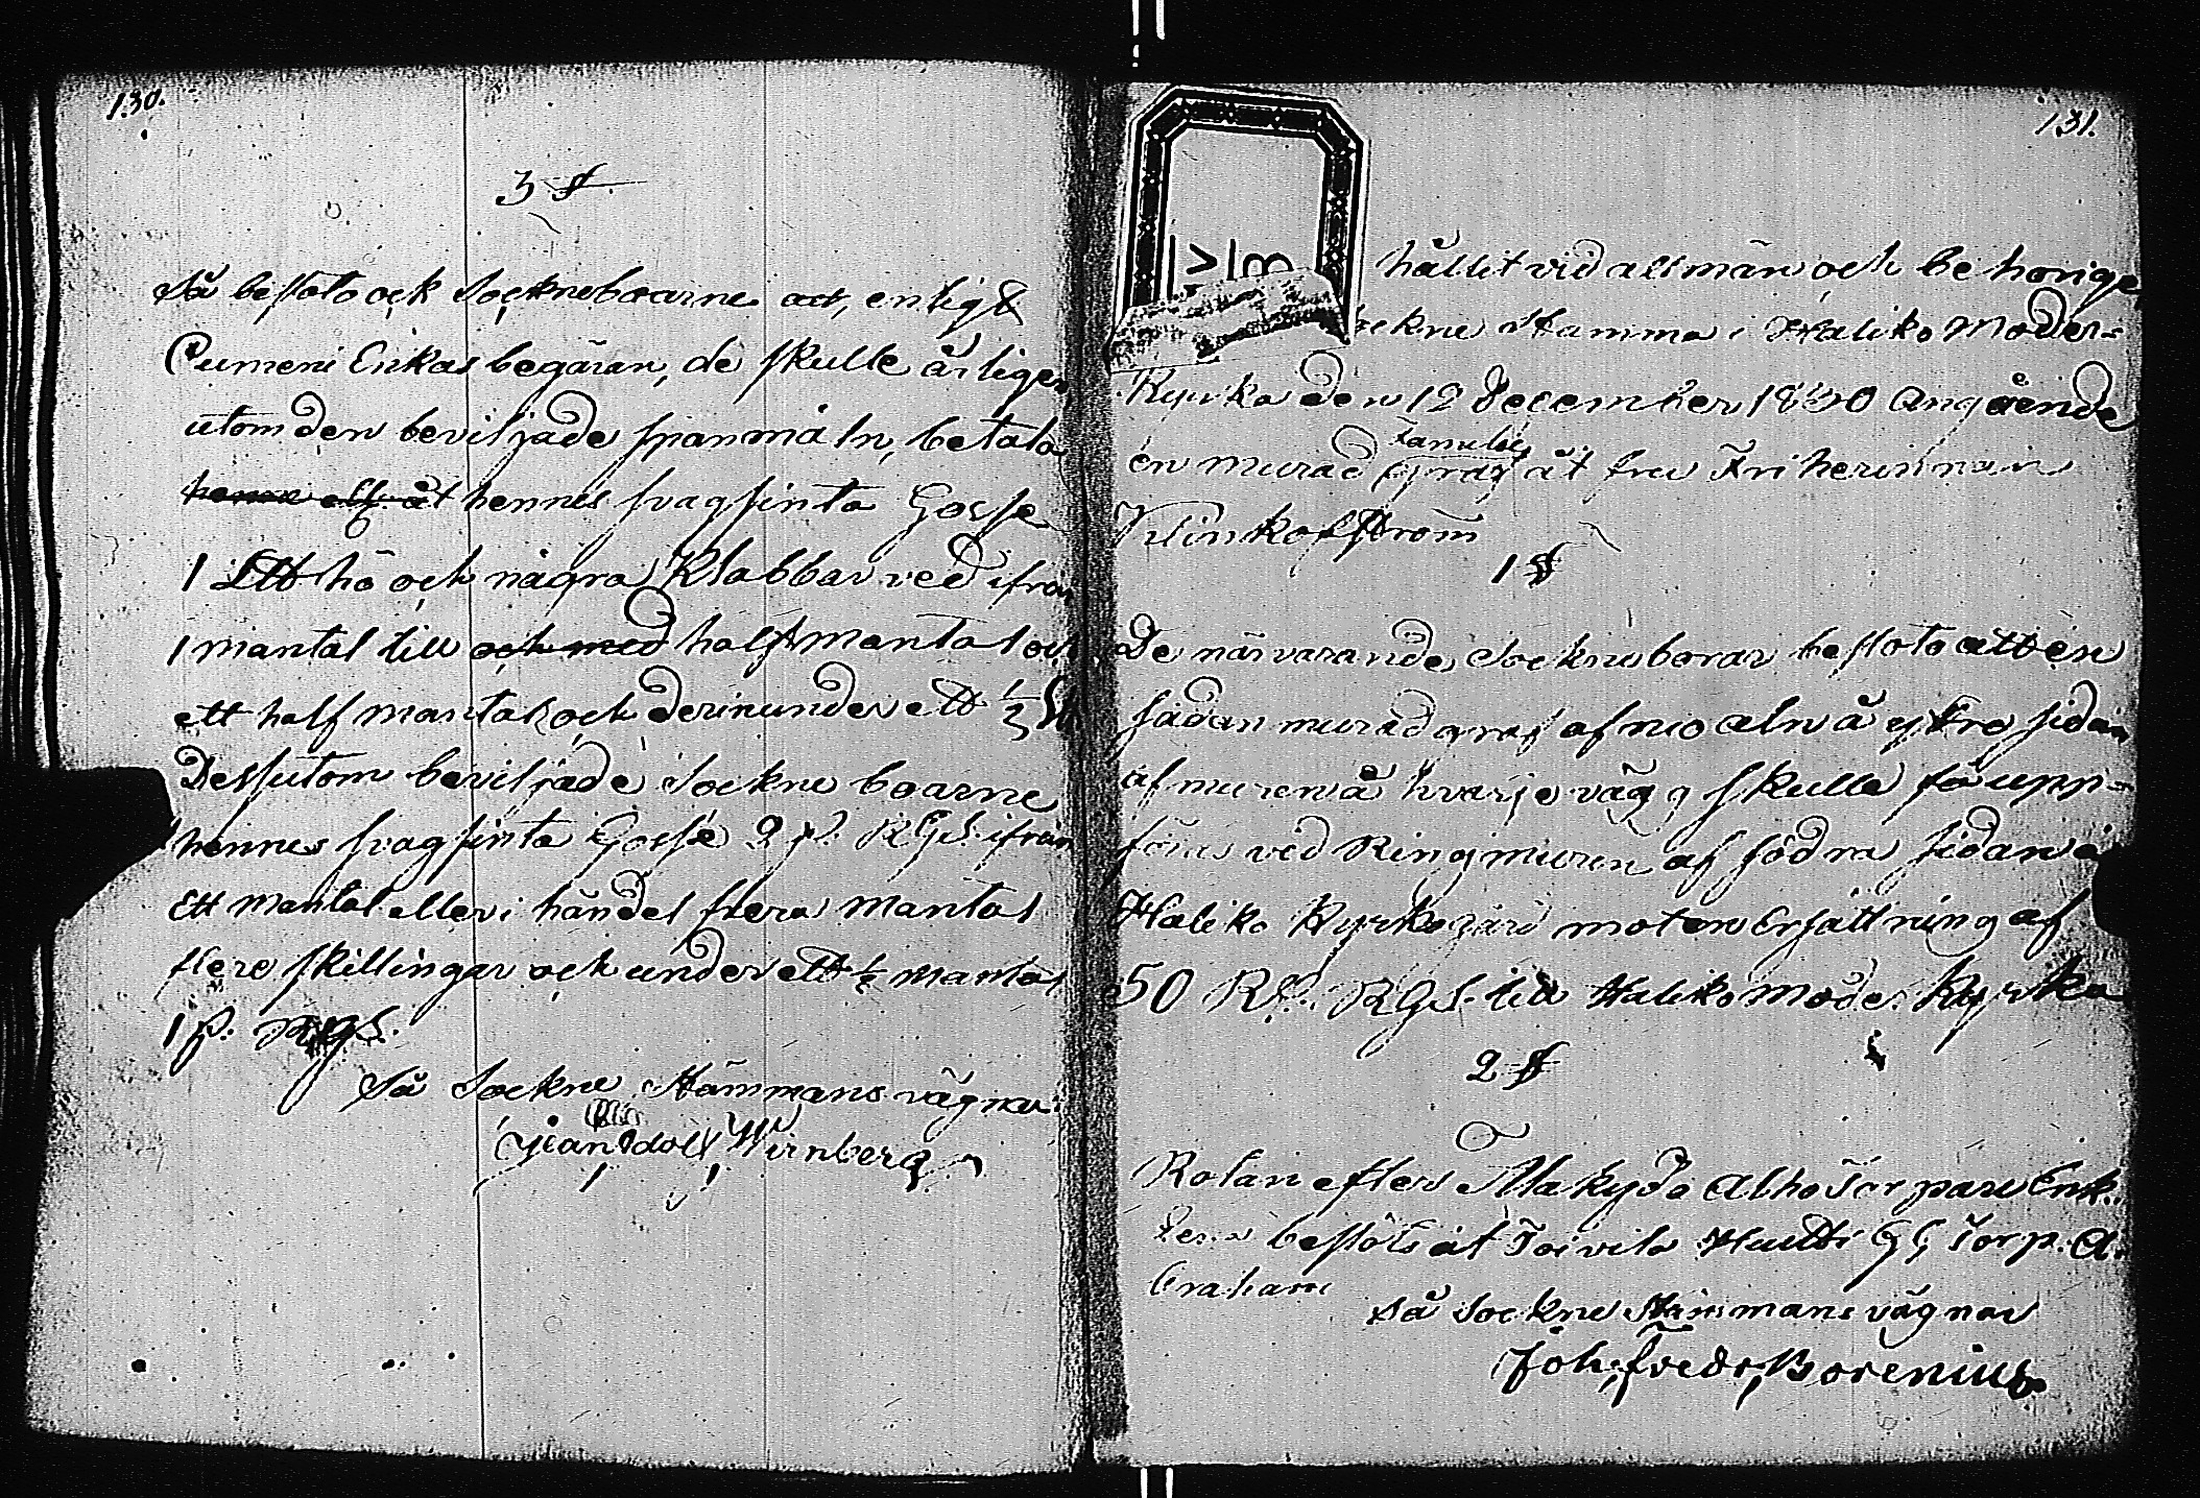 130.
3 §
Så beslöto ock Sockneboarne att, enligt
Pumeni Erikas begäran, de skulle årligen
utom den beviljade spanmåln, betala
henne elf. åt hennes svagsinta Gosse
1 L℔ hö och några Klabbar ved ifrån
1 mantal till och med halft mantal och
ett half mantal och derinunder ett ½ L℔
Dessutom beviljade Sockne boarne
hennes svagsinta Gosse 2 s. RGS. ifrån
Ett mantal eller i händel flera mantal
flere skillingar och under ett ½ mantal
1 s. RGS.
På Sockne Stämmans vägnar
Wirnberg
131.
hållit vid allmän och be hörige
Sockne Stämma i Haliko Moder=
Kyrka den 12 December 1830 Angående
en murad Familie graf åt fru Friherinnan
Klinkofström
1 §
De närvarande Sockneborar beslöto att en
sådan murad graf af nio aln å yttre sidan
af muren å hvarje vägg skulle få upp=
föras vid Ringmuren af södra sidan å
Haliko Kyrkogård mot en Ersättning af
50 R. RGS. till Haliko Moder Kyrka
2 §
Rotan efter Makydö Alho Torpare Enk.
beslöts åt Toivila Hutti Torp. A.
braham
På Sockne Stämmans vägnar
Joh: Fredr: Borenius